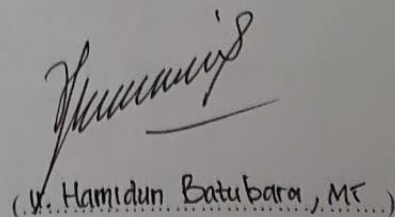 (Ir. Hamidun Batubara, MT )